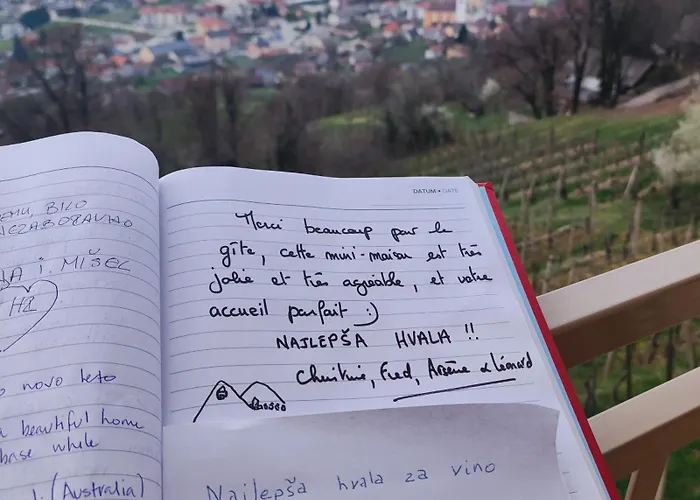 EMU, BILO
NEZABORAVNO
I. MIŠEL
H1
novo leto
beautiful home
base while
(Australia)
DATUM • DATE
Merci beaucoup pour le
gîte, cette mini-maison est très
jolie et très agréable, et votre
accueil parfait :)
NAJLEPŠA HVALA !!
Christine, Fred, Arsène & Léonard
Najlepša hvala za vino